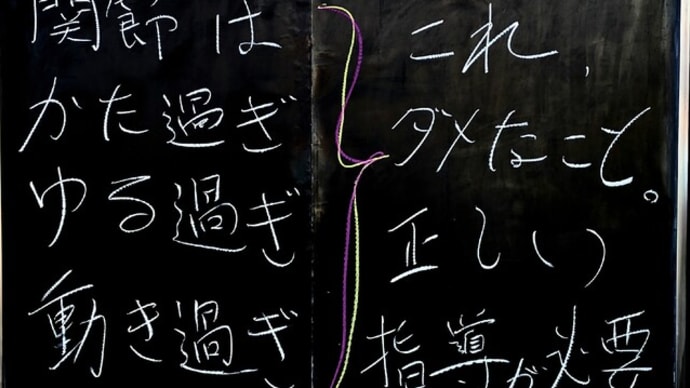 関節は
かた過ぎ
ゆる過ぎ
動き過ぎ
これ、
ダメなこと。
正しい
指導が必要